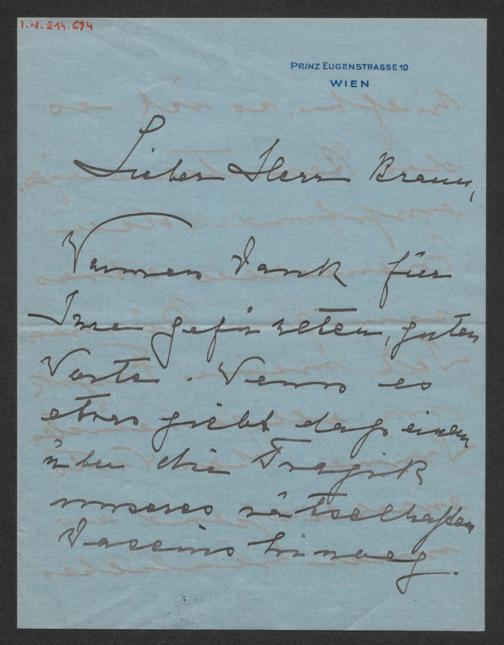 I.N. 214.694
PRINZ EUGENSTRASSE 10
WIEN
Lieber Herr Braun,
Warmen Dank für
Ihre gefühlten, guten
Worte. Wenn es
etwas giebt dass einem
über die Tragik
unseres rätselhaften
Daseins hinweg.